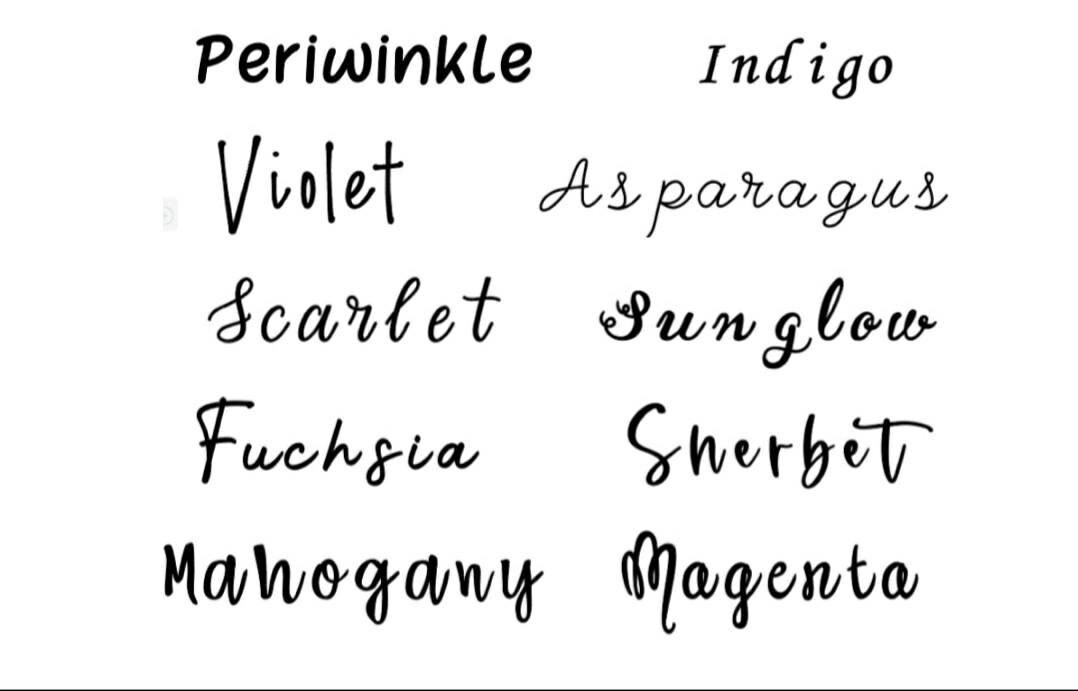 Periwinkle Indigo
Violet Asparagus
Scarlet Sunglow
Fuchsia Sherbet
Mahogany Magenta